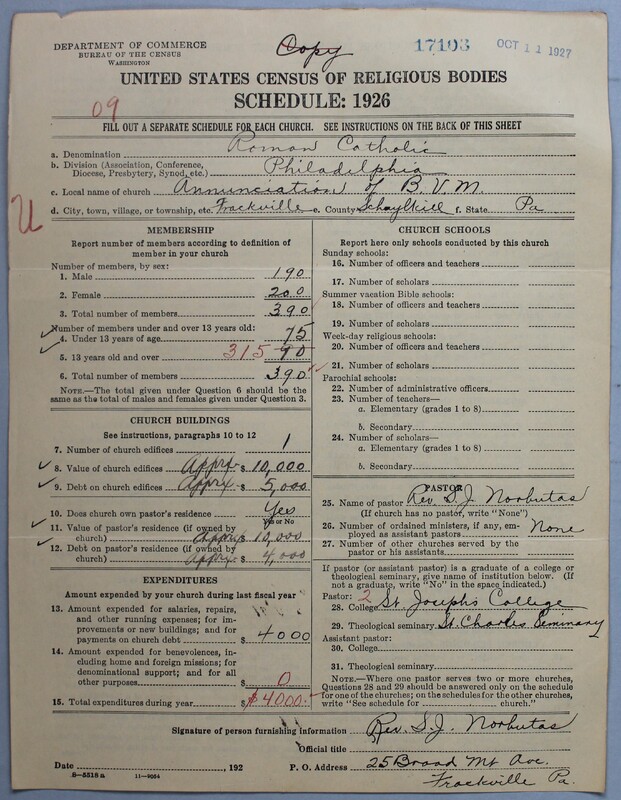 DEPARTMENT OF COMMERCE
BUREAU OF THE CENSUS
WASHINGTON
Copy
17193
OCT 11 1927
UNITED STATES CENSUS OF RELIGIOUS BODIES
SCHEDULE: 1926
09
FILL OUT A SEPARATE SCHEDULE FOR EACH CHURCH. SEE INSTRUCTIONS ON THE BACK OF THIS SHEET
a. Denomination Roman Catholic
b. Division (Association, Conference, Diocese, Presbytery, Synod, etc.) Philadelphia
c. Local name of church Annunciation of B.V.M.
d. City, town, village, or township, etc. Frackville e. County Schuylkill f. State Pa
U
MEMBERSHIP
Report number of members according to definition of
member in your church
Number of members, by sex:
1. Male 190
2. Female 200
3. Total number of members 390
Number of members under and over 13 years old:
4. Under 13 years of age 75
5. 13 years old and over 315 90
6. Total number of members 390
NOTE.—The total given under Question 6 should be
same as the total of males and females given under Question 3.
CHURCH BUILDINGS
See instructions, paragraphs 10 to 12
7. Number of church edifices 1
8. Value of church edifices Apprx $ 10,000
9. Debt on church edifices Apprx $ 5,000
10. Does church own pastor's residence Yes
Yes or No
11. Value of pastor's residence (if owned by
church) Apprx $ 10,000
12. Debt on pastor's residence (if owned by
church) Apprx $ 4,000
EXPENDITURES
Amount expended by your church during last fiscal year
13. Amount expended for salaries, repairs,
and other running expenses; for im-
provements or new buildings; and for
payments on church debt $ 4000
14. Amount expended for benevolences, in-
cluding home and foreign missions; for
denominational support; and for all
other purposes $ 0
15. Total expenditures during year $4000.
CHURCH SCHOOLS
Report here only schools conducted by this church
Sunday schools:
16. Number of officers and teachers
17. Number of scholars
Summer vacation Bible schools:
18. Number of officers and teachers
19. Number of scholars
Week-day religious schools:
20. Number of officers and teachers
21. Number of scholars
Parochial schools:
22. Number of administrative officers
23. Number of teachers—
a. Elementary (grades 1 to 8)
b. Secondary
24. Number of scholars—
a. Elementary (grades 1 to 8)
b. Secondary
PASTOR
25. Name of pastor Rev. S. J. Norbutas
(If church has no pastor, write "None")
26. Number of ordained ministers, if any, em-
ployed as assistant pastors None
27. Number of other churches served by the
pastor or his assistants
If pastor (or assistant pastor) is a graduate of a college or
theological seminary, give name of institution below. (If
not a graduate, write "No" in the space indicated.)
Pastor: 2
28. College St. Josephs College
29. Theological seminary St. Charles Seminary
Assistant pastor:
30. College
31. Theological seminary
NOTE.—Where one pastor serves two or more churches,
Questions 28 and 29 should be answered only on the schedule
for one of the churches; on the schedules for the other churches,
write "See schedule for church."
Signature of person furnishing information Rev. S. J. Norbutas
Official title
Date , 192 P. O. Address 25 Broad Mt Ave.
8—5318 a 11—9064
Frackville Pa.